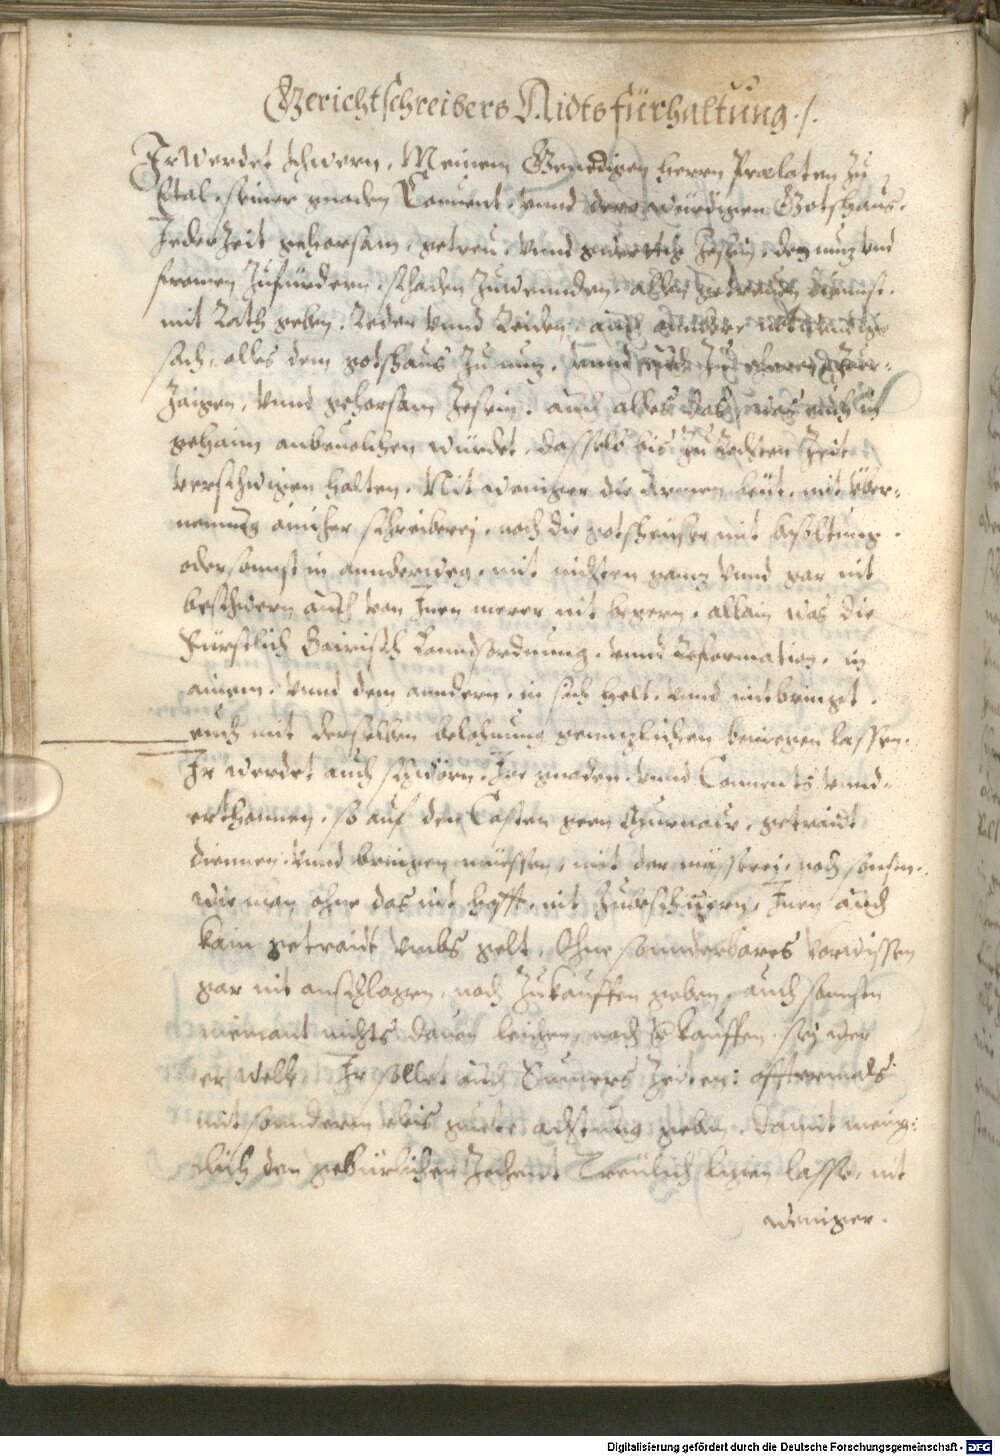 Gerichtschreibers Aidtsfürhaltung ./.
Ir werdet schwern, Meinem Genedigen herrn Prælaten zu
Etal, seiner gnaden Conuent, vnnd dero würdigen Gotshaus,
Jederzeit gehorsam, getreu, vnnd zesein, den nuz vnd
fromen zufürdern, schaden zuwennden, allen getreuen diennst,
mit Rath geben, Reden vnnd Reiden, auch anndere notwendige
sach, alles dem gotshaus zu nuz, vnnd zu
zaigen, vnnd gehorsam zesein, auch alles das, was euch in
gehaim anbeuolchen würdet, dasselb bis zu Rechter Zeit
verschwigen halten, Nit weniger die Armen leüt, mit Über-
nemung ainicher schreiberej, noch die gotsheuser mit besoltung,
oder sonnst in annderweg, mit nichten gannz vnnd gar nit
beschwern auch von Inen merer nit begern, allain was die
Fürstlich Bairisch Lanndsordnung, vnnd Reformation, in
ainem, vnnd dem anndern, in sich helt, vnnd mitbringet,
euch mit derselben belohnung genntzlichen benüegen lassen.
Ir werdet auch schwörn, Ire gnaden vnnd Conuents vnnd-
erthannen, so auf den Casten geen Murnau, getraidt
diennen vnnd bringen müessen, mit der mässerej, noch sonsten,
wie man ohne das nit hofft, nit zubeschwern, Inen auch
kain getraidt vmbs gelt, Ohne sonnderbares vorwissen
gar nit anschlagen, noch zukauffen geben, auch sonnsten
niemant nichts dauon leichen, noch verkauffen, sej wer
er welle, Ir sollet auch Sumers Zeiten: offtermals
mit sonnderm vleis guete achtung geben, damit menig-
clich den gebürlichen Zehent Treülich ligen lasse, nit
weniger.
Digitalisierung gefördert durch die Deutsche Forschungsgemeinschaft - DFG